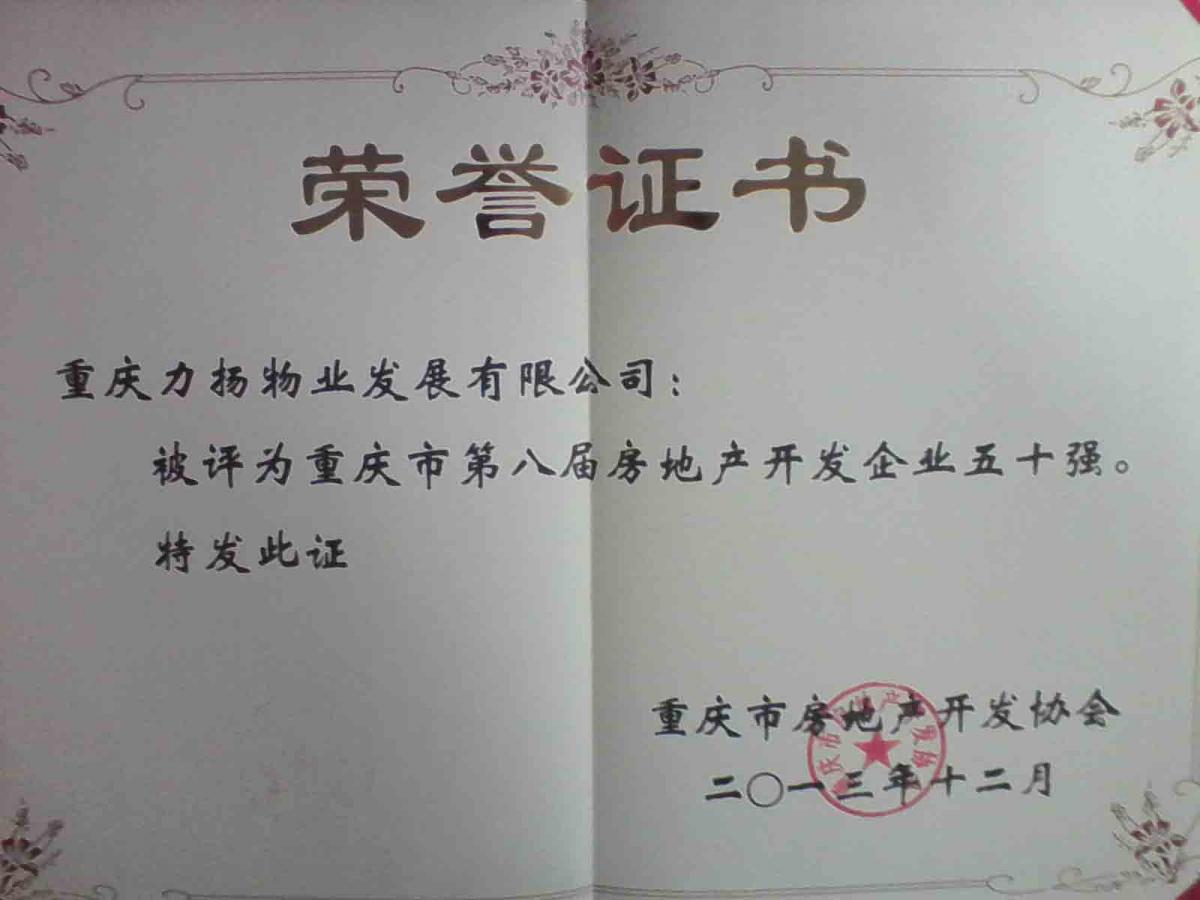 荣誉证书
重庆力扬物业发展有限公司：
被评为重庆市第八届房地产开发企业五十强。
特发此证
重庆市房地产开发协会
二〇一三年十二月